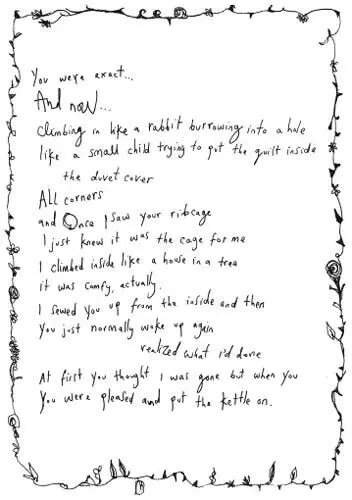 You were exact...
And now...
Climbing in like a rabbit burrowing into a hole
like a small child trying to put the quilt inside
the duvet cover
All corners
and Once I saw your ribcage
I just knew it was the cage for me
I climbed inside like a house in a tree
it was comfy, actually.
I sewed you up from the inside and then
You just normally woke up again
realized what i'd done
At first you thought I was gone but when you
You were pleased and put the kettle on.